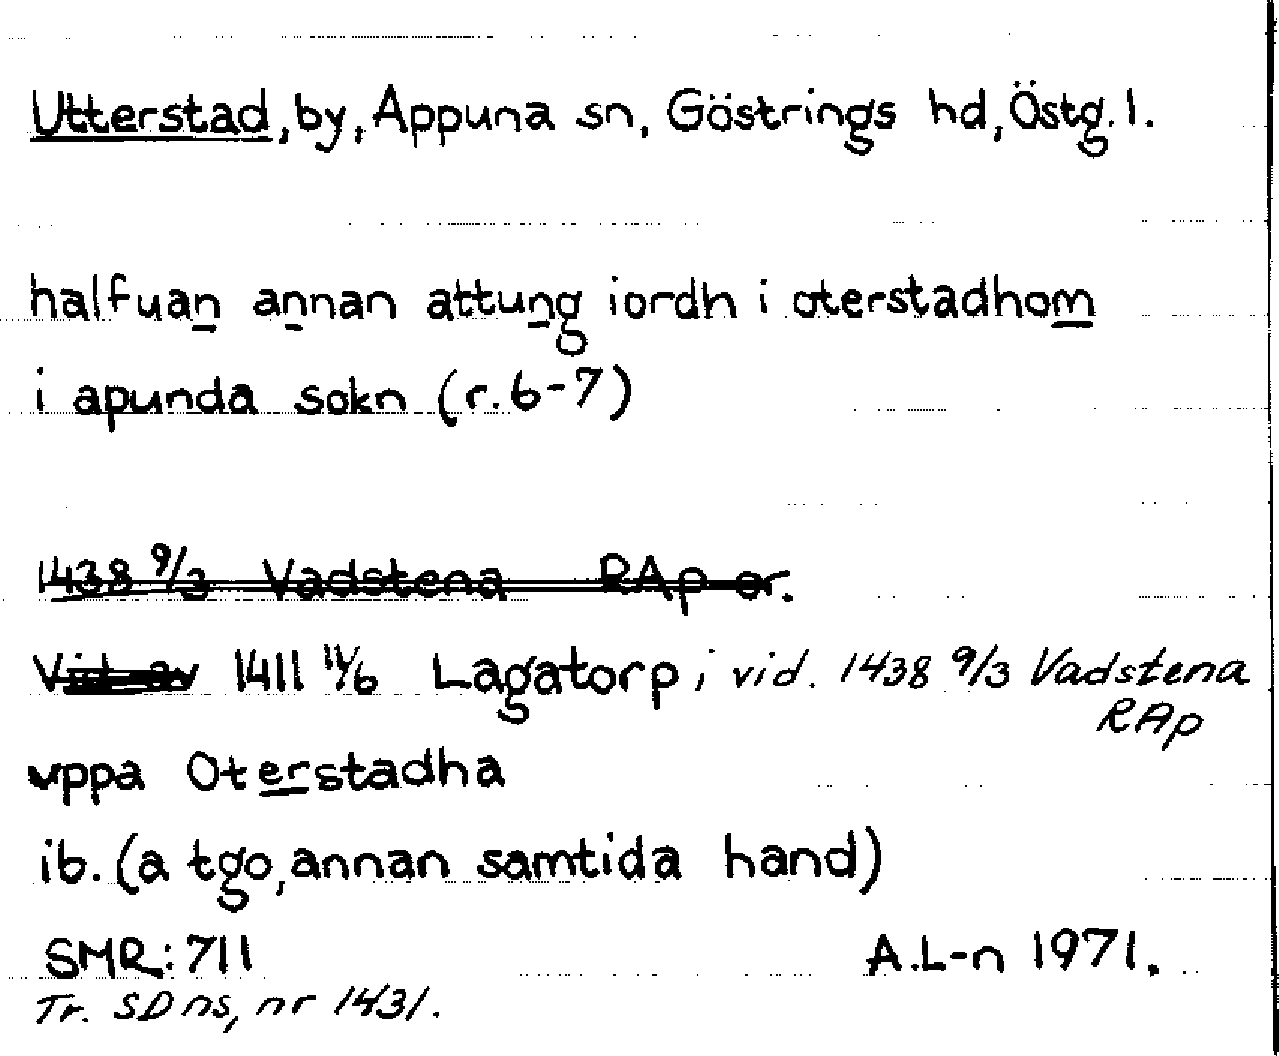 Utterstad, by, Appuna sn, Göstrings hd, Östg. l.
halfuan annan attung iordh i oterstadhom
i apunda sokn (r. 6-7)
1438 9/3 Vadstena RAp or.
Vid av 1411 11/6 Lagatorp i vid. 1438 9/3 Vadstena
RAp
uppa Oterstadha
ib. (a tgo, annan samtida hand)
SMR: 711 A.L-n 1971.
Tr. SDns, nr 1431.